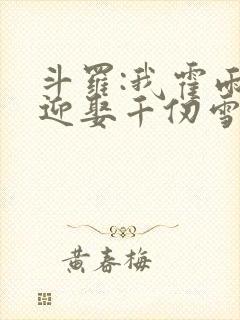 斗羅:我霍雨
迎娶千仞雪
黄春梅